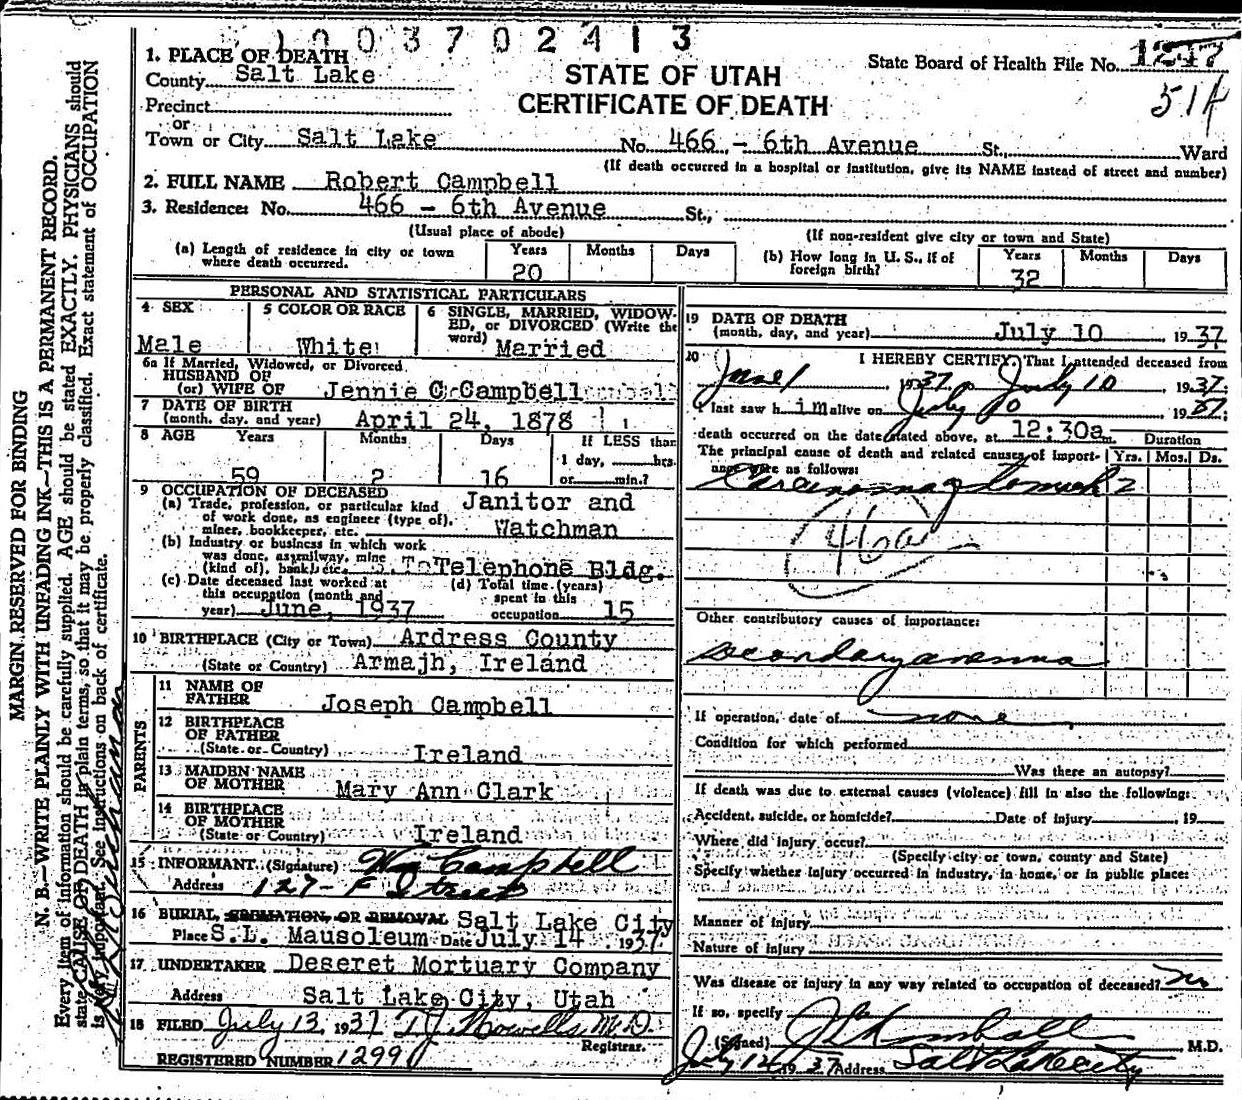 1003702413
1. PLACE OF DEATH
County Salt Lake
Precinct
or
Town or City Salt Lake No. 466 - 6th Avenue St., Ward
STATE OF UTAH
CERTIFICATE OF DEATH
State Board of Health File No.
(If death occurred in a hospital or institution, give its NAME instead of street and number)
2. FULL NAME Robert Campbell
3. Residence: No. 466 - 6th Avenue St.,
(Usual place of abode) (If non-resident give city or town and State)
(a) Length of residence in city or town where death occurred. Years 20 Months Days
(b) How long in U. S., if of foreign birth? Years 32 Months Days
PERSONAL AND STATISTICAL PARTICULARS
4 SEX Male
5 COLOR OR RACE White
6 SINGLE, MARRIED, WIDOWED, or DIVORCED (Write the word) Married
6a If Married, Widowed, or Divorced
HUSBAND OF
(or) WIFE OF Jennie C. Campbell
7 DATE OF BIRTH
(month, day, and year) April 24, 1878
8 AGE Years 59 Months 2 Days 16 If LESS than 1 day, hrs. or min.?
9 OCCUPATION OF DECEASED
(a) Trade, profession, or particular kind of work done, as engineer (type of), miner, bookkeeper, etc. Janitor and Watchman
(b) Industry or business in which work was done, as railway, mine (kind of), bank, etc. Telephone Bldg.
(c) Date deceased last worked at this occupation (month and year) June, 1937
(d) Total time (years) spent in this occupation 15
10 BIRTHPLACE (City or Town) Ardress County
(State or Country) Armajh, Ireland
PARENTS
11 NAME OF FATHER Joseph Campbell
12 BIRTHPLACE OF FATHER
(State or Country) Ireland
13 MAIDEN NAME OF MOTHER Mary Ann Clark
14 BIRTHPLACE OF MOTHER
(State or Country) Ireland
15 INFORMANT (Signature) Wm Campbell
Address 127 - F Street
16 BURIAL, CREMATION, OR REMOVAL Salt Lake City
Place S.L. Mausoleum Date July 14 1937
17 UNDERTAKER Deseret Mortuary Company
Address Salt Lake City, Utah
18 FILED July 13, 1937 T.J. Howells M.D.
Registrar.
REGISTERED NUMBER 1299
19 DATE OF DEATH
(month, day, and year) July 10 1937
20 I HEREBY CERTIFY, That I attended deceased from
June 1 1937 July 10 1937
I last saw him alive on July 10 1937
death occurred on the date stated above, at 12:30a m.
The principal cause of death and related causes of importance were as follows: Duration Yrs. Mos. Ds.
Carcinoma of stomach 2
46a
Other contributory causes of importance:
secondary anemia
If operation, date of none
Condition for which performed
Was there an autopsy?
If death was due to external causes (violence) fill in also the following:
Accident, suicide, or homicide? Date of injury 19
Where did injury occur?
(Specify city or town, county and State)
Specify whether injury occurred in industry, in home, or in public place:
Manner of injury
Nature of injury
Was disease or injury in any way related to occupation of deceased? no
If so, specify
(Signed) M.D.
July 12 1937 Address Salt Lake City
MARGIN RESERVED FOR BINDING
N. B.—WRITE PLAINLY WITH UNFADING INK—THIS IS A PERMANENT RECORD.
Every item of information should be carefully supplied. AGE should be stated EXACTLY. PHYSICIANS should
state CAUSE OF DEATH in plain terms, so that it may be properly classified. Exact statement of OCCUPATION
is very important. See instructions on back of certificate.